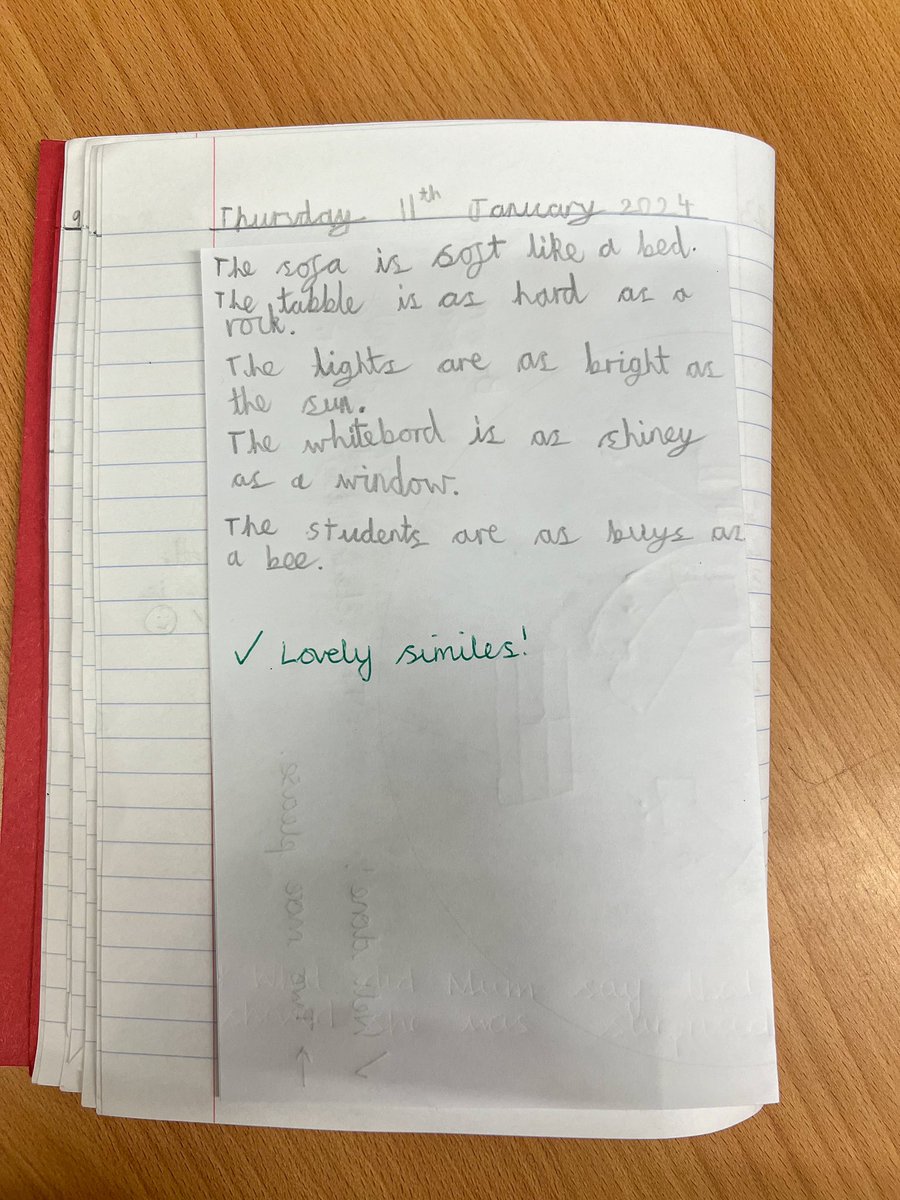 9
Thursday 11th January 2024
The sofa is soft like a bed.
The tabble is as hard as a
rock.
The lights are as bright as
the sun.
The whitebord is as shiney
as a window.
The students are as buys as
a bee.
✓ Lovely similes!